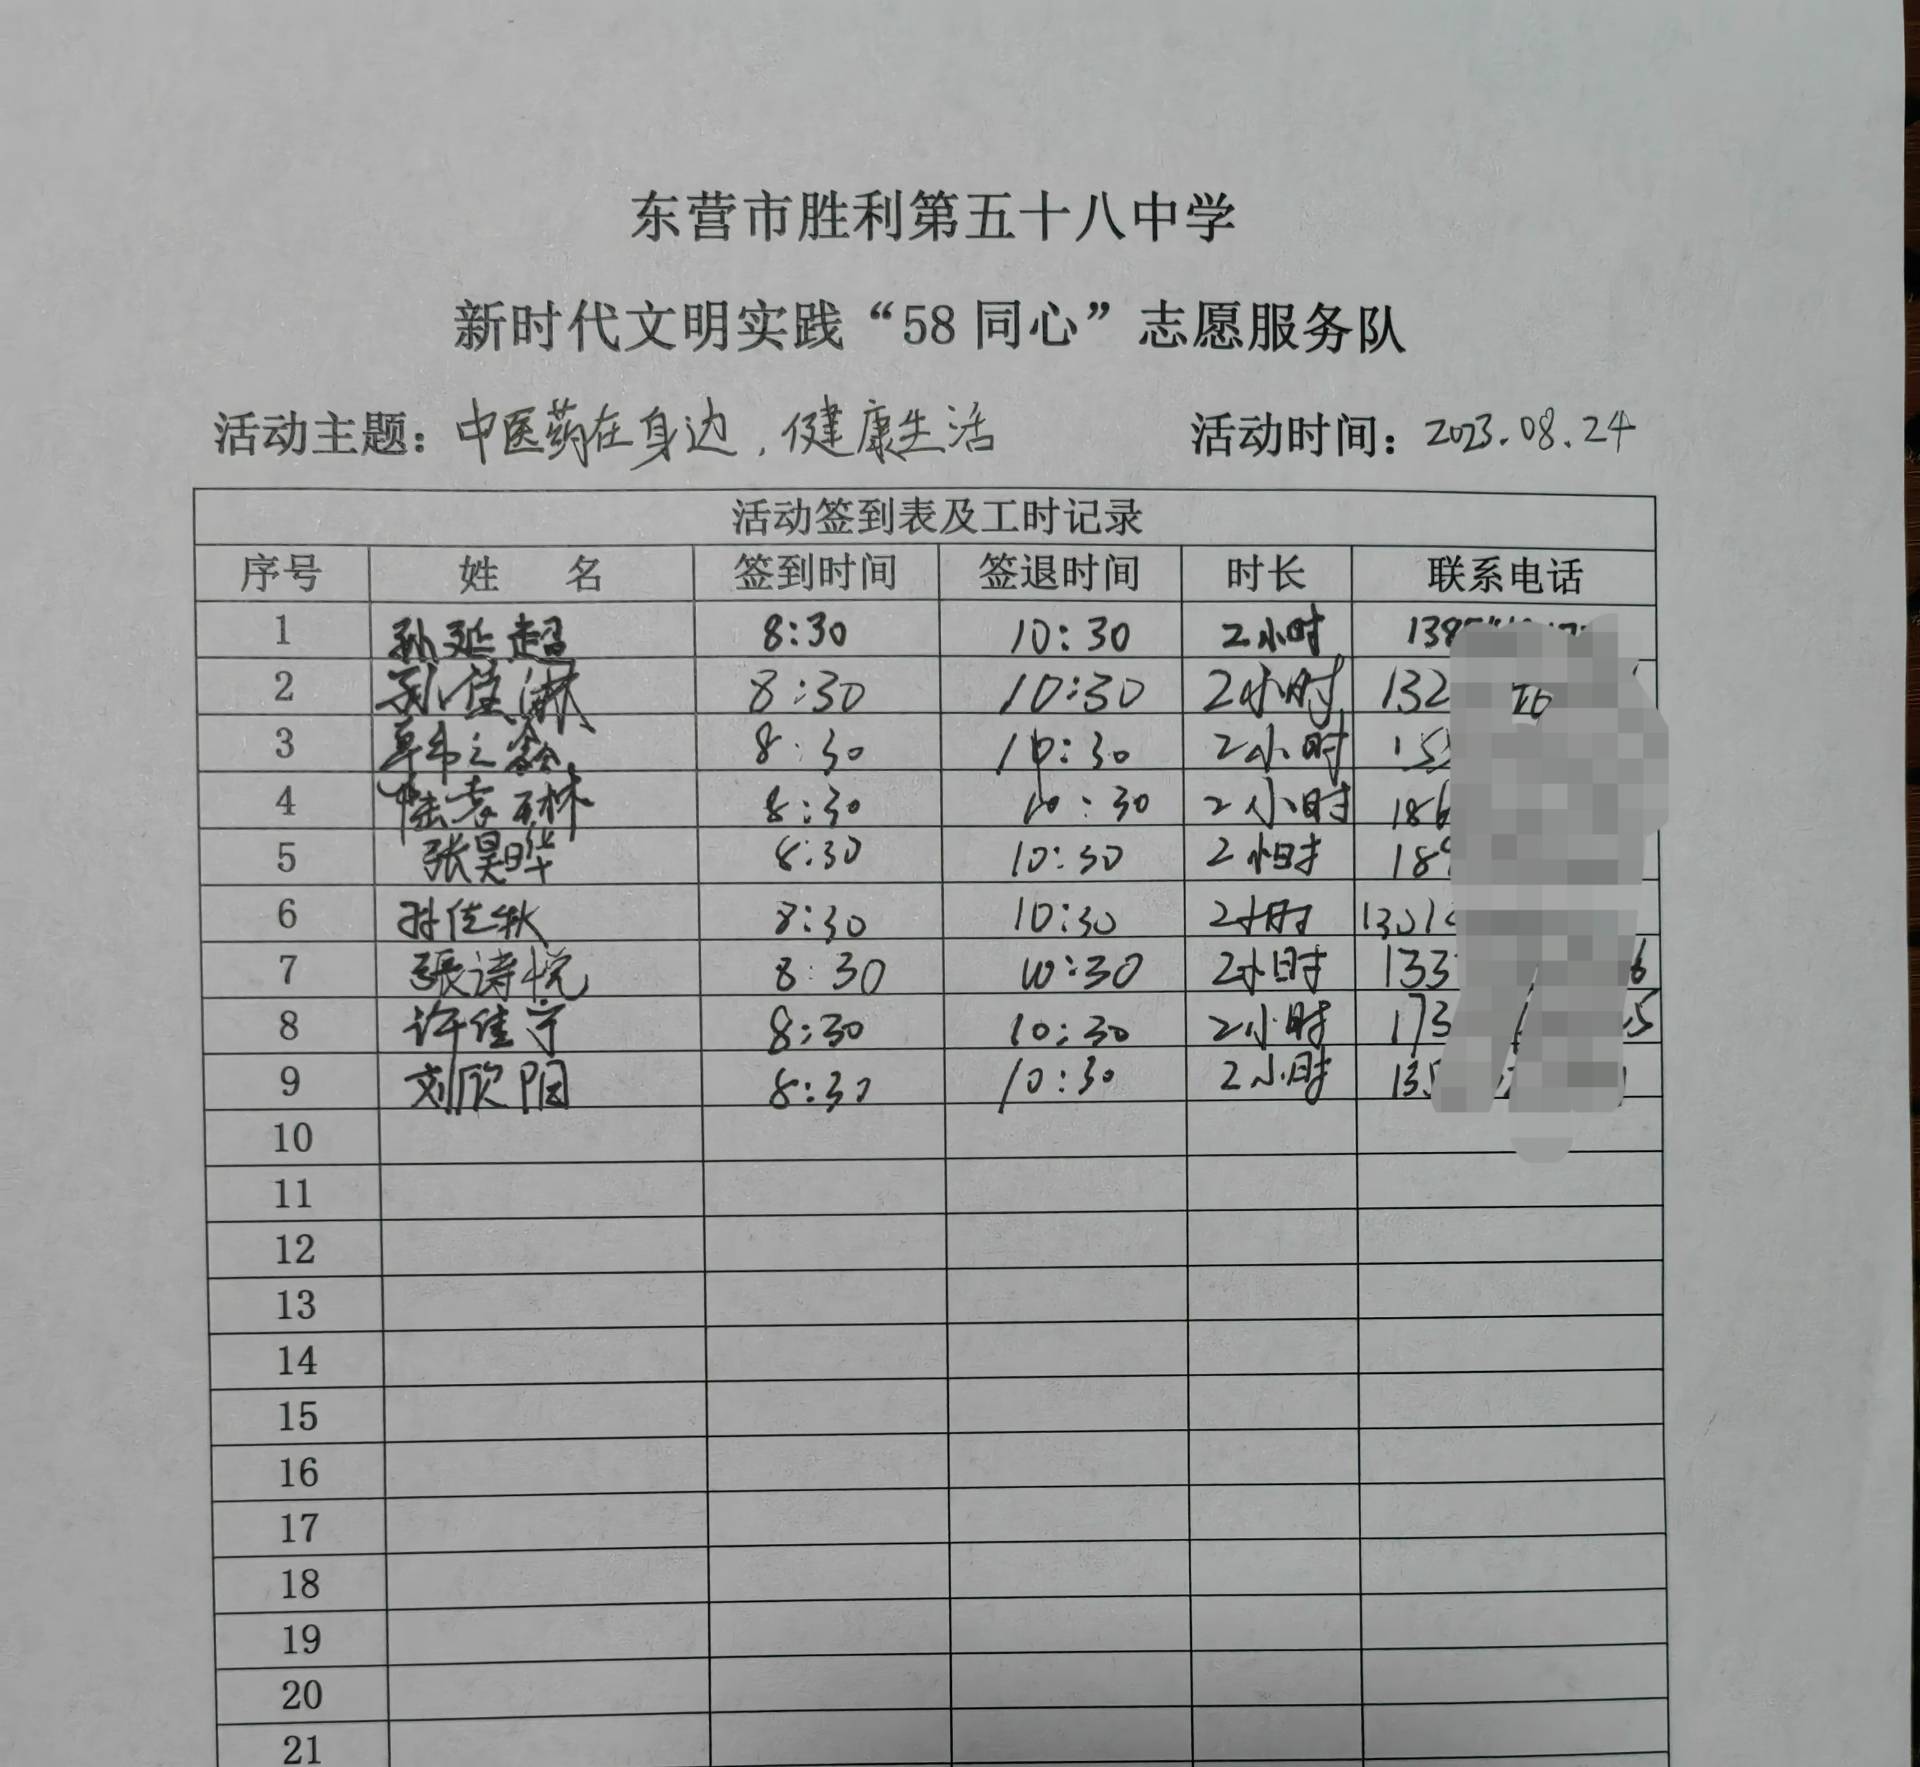 东营市胜利第五十八中学
新时代文明实践“58 同心”志愿服务队
活动主题：中医药在身边，健康生活 活动时间：2023.08.24
活动签到表及工时记录
序号 姓 名 签到时间 签退时间 时长 联系电话
1 孙延超 8:30 10:30 2小时 138
2 孙佳淋 8:30 10:30 2小时 132
3 8:30 10:30 2小时 15
4 8:30 10:30 2小时 186
5 张昊晔 8:30 10:30 2小时 189
6 孙佳秋 8:30 10:30 2小时 1301
7 張诗悦 8:30 10:30 2小时 133 6
8 许佳宁 8:30 10:30 2小时 173 5
9 刘欣阳 8:30 10:30 2小时 135
10
11
12
13
14
15
16
17
18
19
20
21